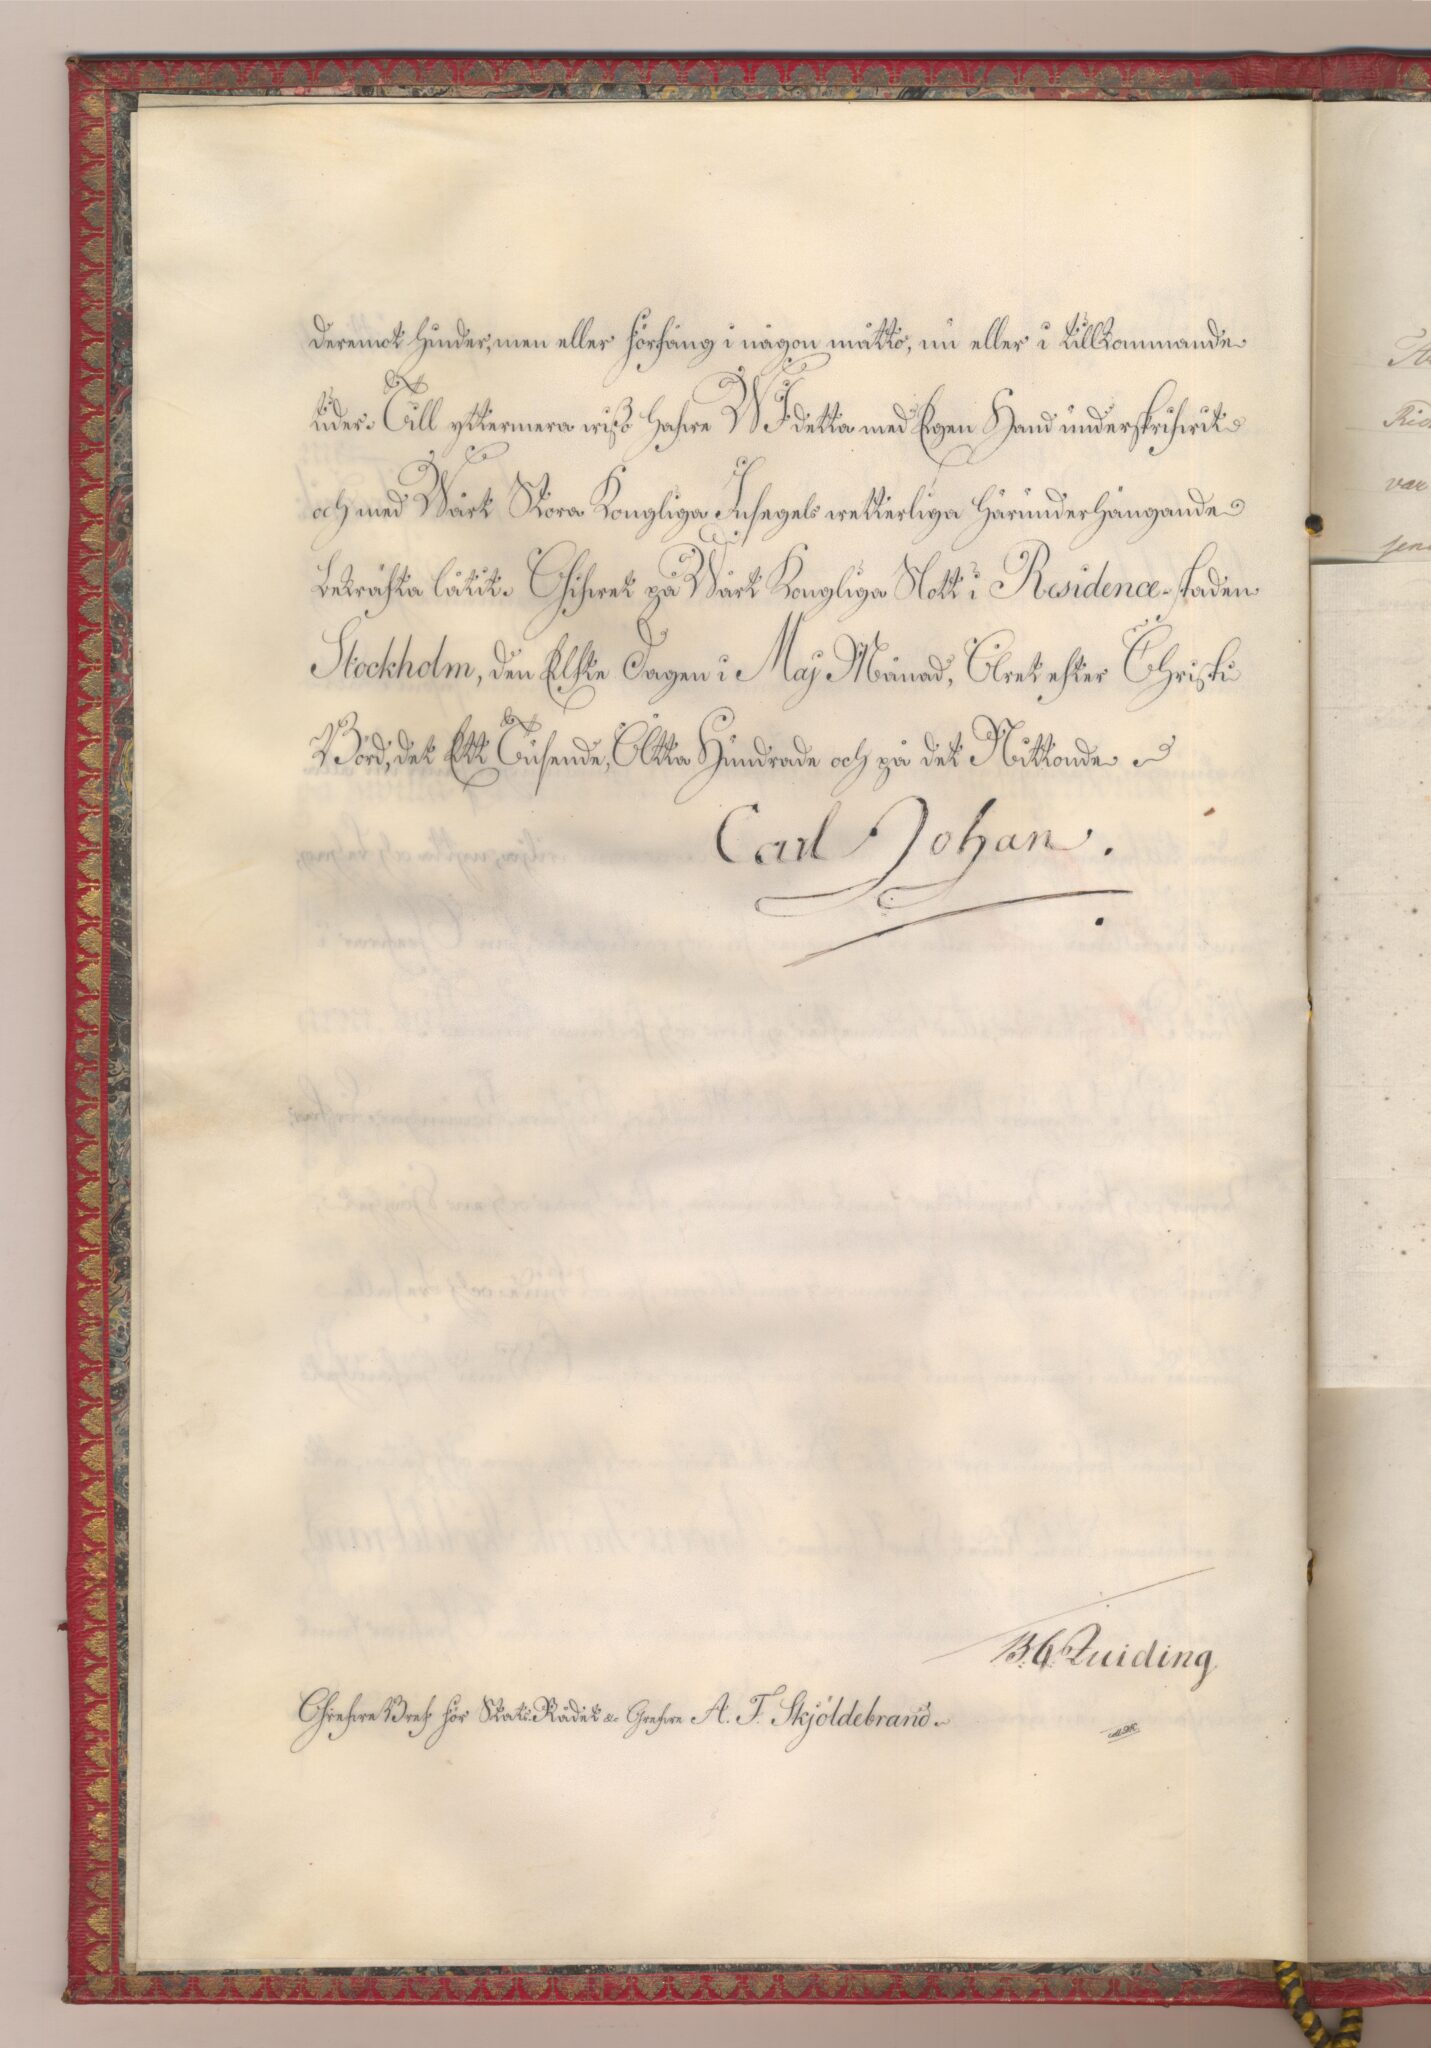 deremot hinder, men eller förfång i någon måtto, nu eller i tillkommande
tider. Till yttermera wisso hafwe WI detta med Egen Hand underskrifwit
och med Wårt Stora Kongliga Insegels wetterliga härunderhängande
bekräfta låtit. Gifwet på Wårt Kongliga Slott i Residence-staden
Stockholm, den Elfte Dagen i Maj Månad, Året efter Christi
Börd, det Ett Tusende, Åtta Hundrade och på det Nittonde
Carl Johan.
Quiding
Grefwe Bref för Stats-Rådet &c Grefwe A. F. Skjöldebrand.
var